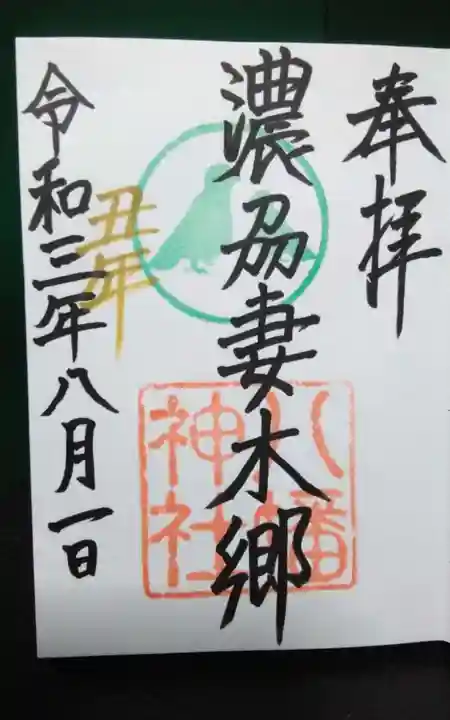 奉拝
濃刕妻木郷
八幡
神社
丑年
令和三年八月一日